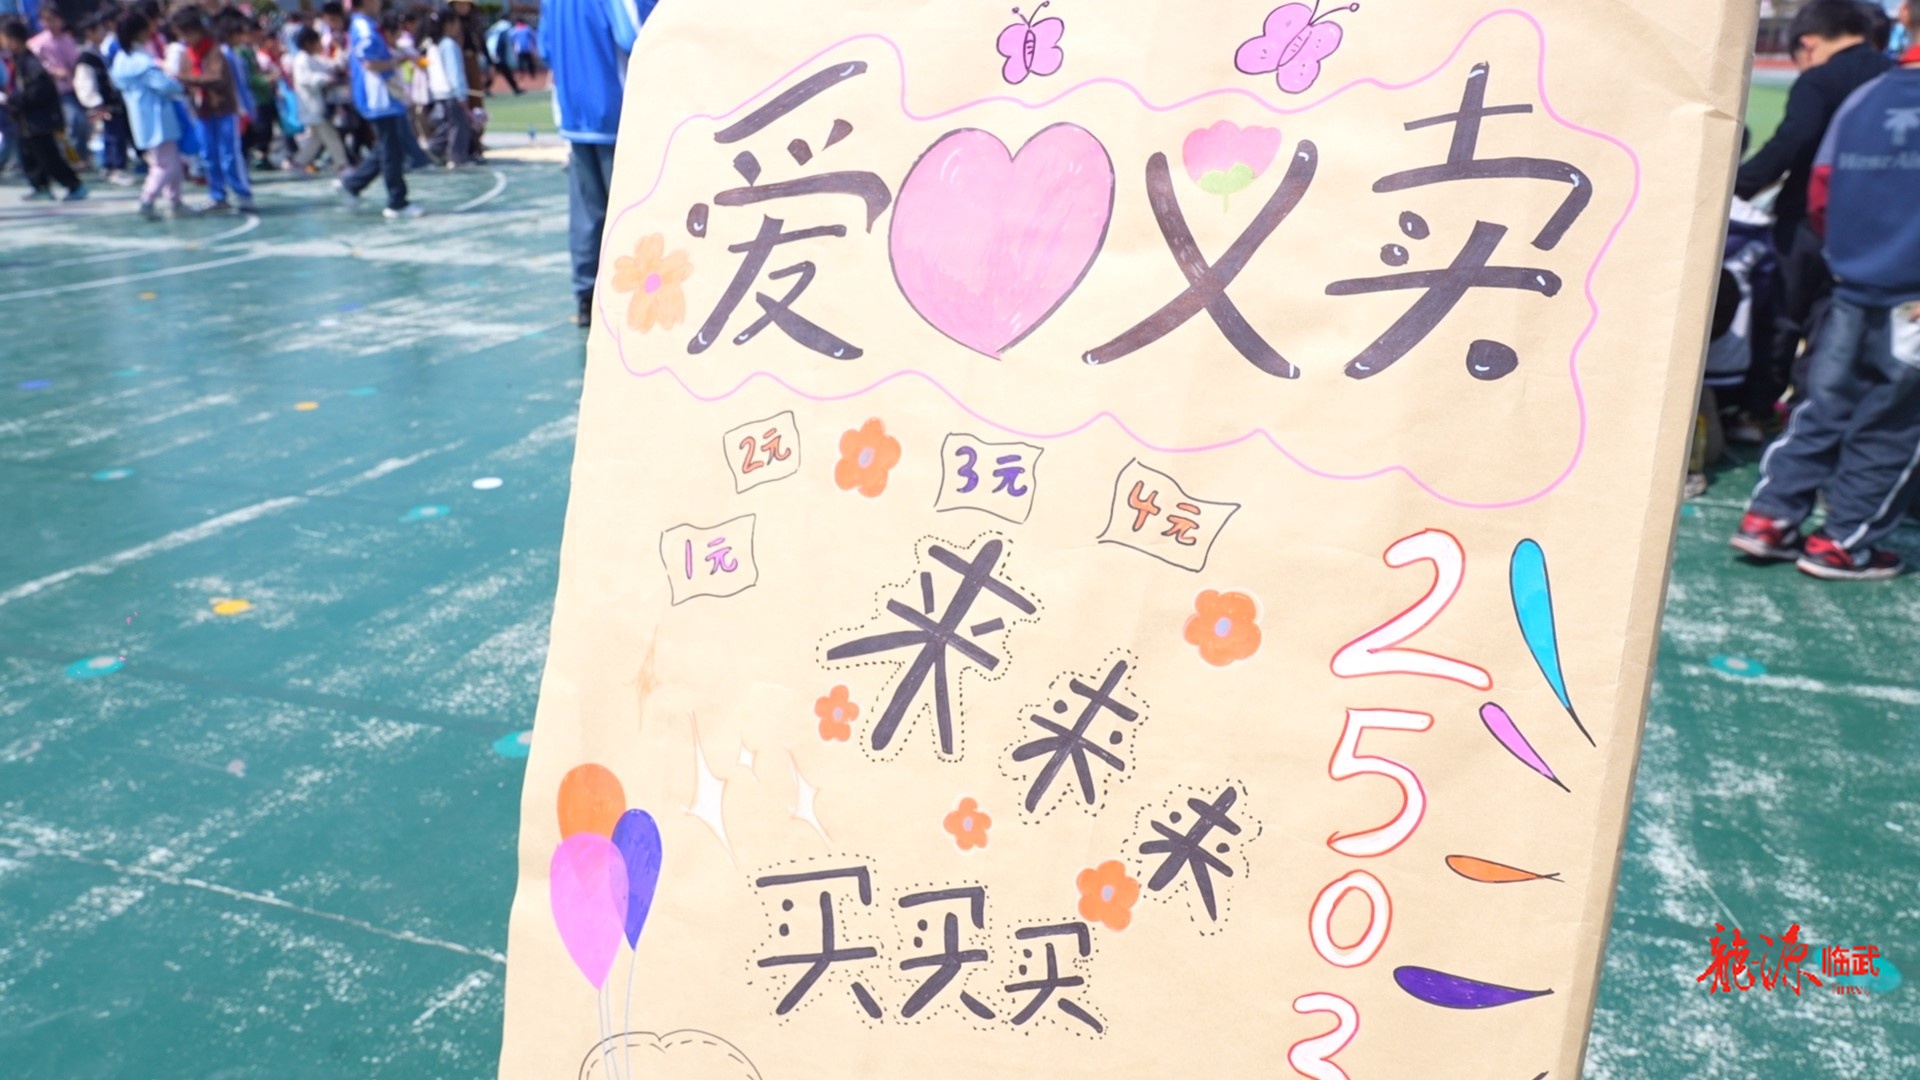 爱义卖
2元
3元
4元
1元
来来来
买买买
2503
龙源临武